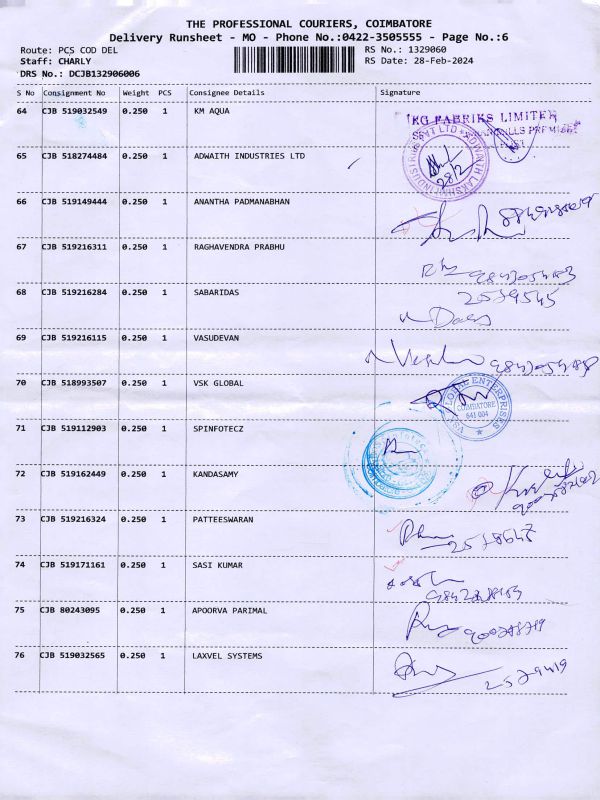 THE PROFESSIONAL COURIERS, COIMBATORE
Delivery Runsheet - MO - Phone No.:0422-3505555 - Page No.:6
Route: PCS COD DEL RS No.: 1329060
Staff: CHARLY RS Date: 28-Feb-2024
DRS No.: DCJB132906006
S No Consignment No Weight PCS Consignee Details Signature
64 CJB 519032549 0.250 1 KM AQUA
KG FABRIKS LIMITED
65 CJB 518274484 0.250 1 ADWAITH INDUSTRIES LTD
28/2
66 CJB 519149444 0.250 1 ANANTHA PADMANABHAN
67 CJB 519216311 0.250 1 RAGHAVENDRA PRABHU
68 CJB 519216284 0.250 1 SABARIDAS
2579545
69 CJB 519216115 0.250 1 VASUDEVAN
70 CJB 518993507 0.250 1 VSK GLOBAL
VSK GLOBAL ENTERPRISES
COIMBATORE
641 004
71 CJB 519112903 0.250 1 SPINFOTECZ
72 CJB 519162449 0.250 1 KANDASAMY
73 CJB 519216324 0.250 1 PATTEESWARAN
74 CJB 519171161 0.250 1 SASI KUMAR
75 CJB 80243095 0.250 1 APOORVA PARIMAL
76 CJB 519032565 0.250 1 LAXVEL SYSTEMS
2579419